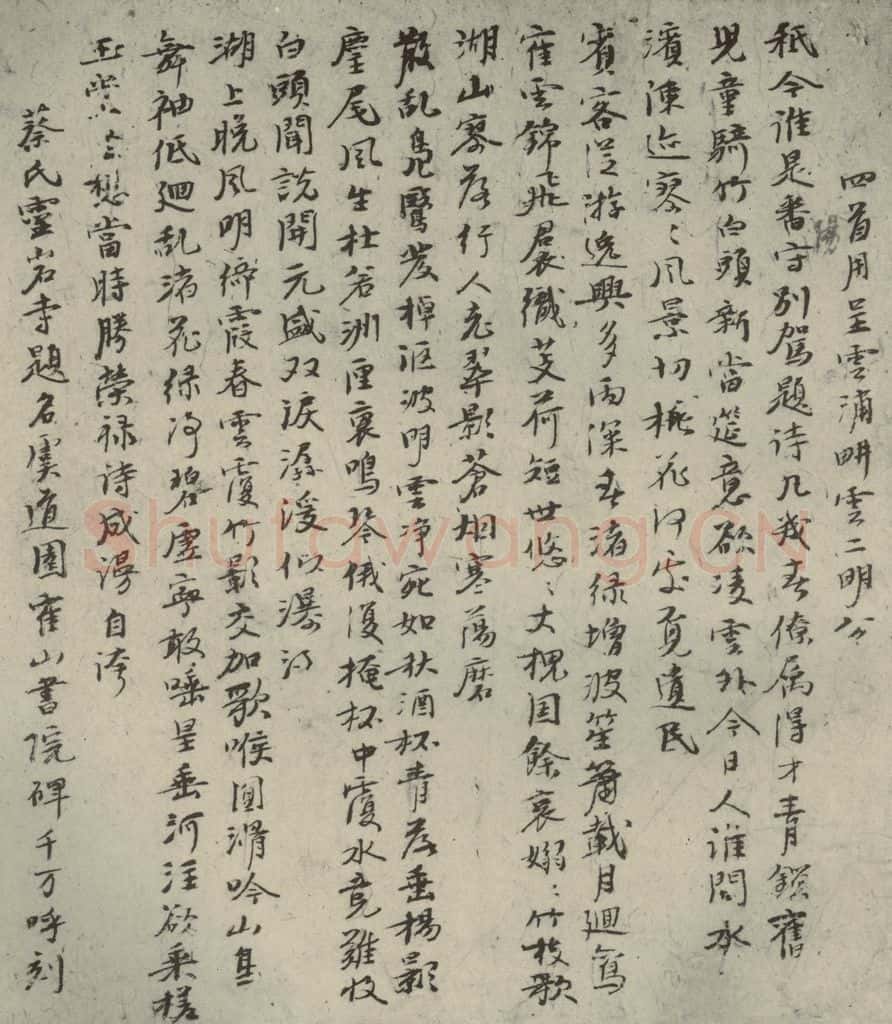 四首用呈雲浦畊雲二明公
祇今誰是番守別駕題诗几我春僚属得才青鎖舊
鄱
児童騎竹白頭新當筵意欲凌雲外今日人誰問水
濱陳迹寥〻風景切桃花何處覓遺民
賓客從游逸興多雨深春渚绿增波笙簫載月廻鴛
雲錦飛晨織芰荷短世悠〻大槐国餘哀嫋〻竹枝歌
湖山寥落行人老翠影蒼烟寒蕩磨
散乱鳧驚发棹漚波明雲净宛如秋酒杯青落垂楊影
麈尾風生杜若洲匣裏鳴琴俄復掩杯中覆水竟難收
白頭聞說開元盛双淚潺湲似瀑流
湖上晚風明綺霞春雲覆竹影交加歌喉圓滑吟山鳥
舞袖低廻乱渚花绿净碧虚寧敢唾星垂河注欲乗槎
玉堂今想當時勝榮禄诗成漫自誇
蔡氏靈岩寺題名虞道園霍山書院碑千万呼刻
Shutawang.CN